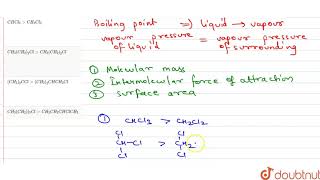 CHCl₃ > CH₂Cl₂
CH₃(CH₂)₃Cl > CH₃(CH₂)₂Cl
(CH₃)₃CCl > (CH₃)₂CHCH₂Cl
CH₃(CH₂)₃Cl > CH₃CH₂CHClCH₃
Boiling point => liquid → vapour
vapour pressure of liquid = vapour pressure of surrounding
① Molecular mass
② Intermolecular force of attraction
③ surface area
① CHCl₂ > CH₂Cl₂
Cl Cl
CH-Cl > CH₂
Cl Cl
doubtnut